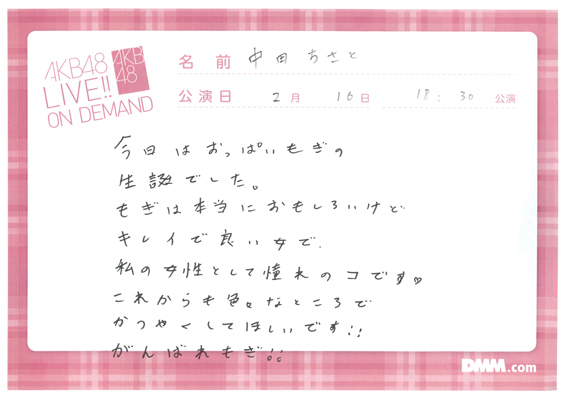 AKB48
LIVE!!
ON DEMAND
AKB
48
名前 中田ちさと
公演日 2月 16日 18:30 公演
今日はおっぱいもぎの
生誕でした。
もぎは本当におもしろいけど
キレイで良い女で、
私の女性として憧れのコです♡
これからも色々なところで
かつやくしてほしいです!!
がんばれもぎ!!
DMM.com